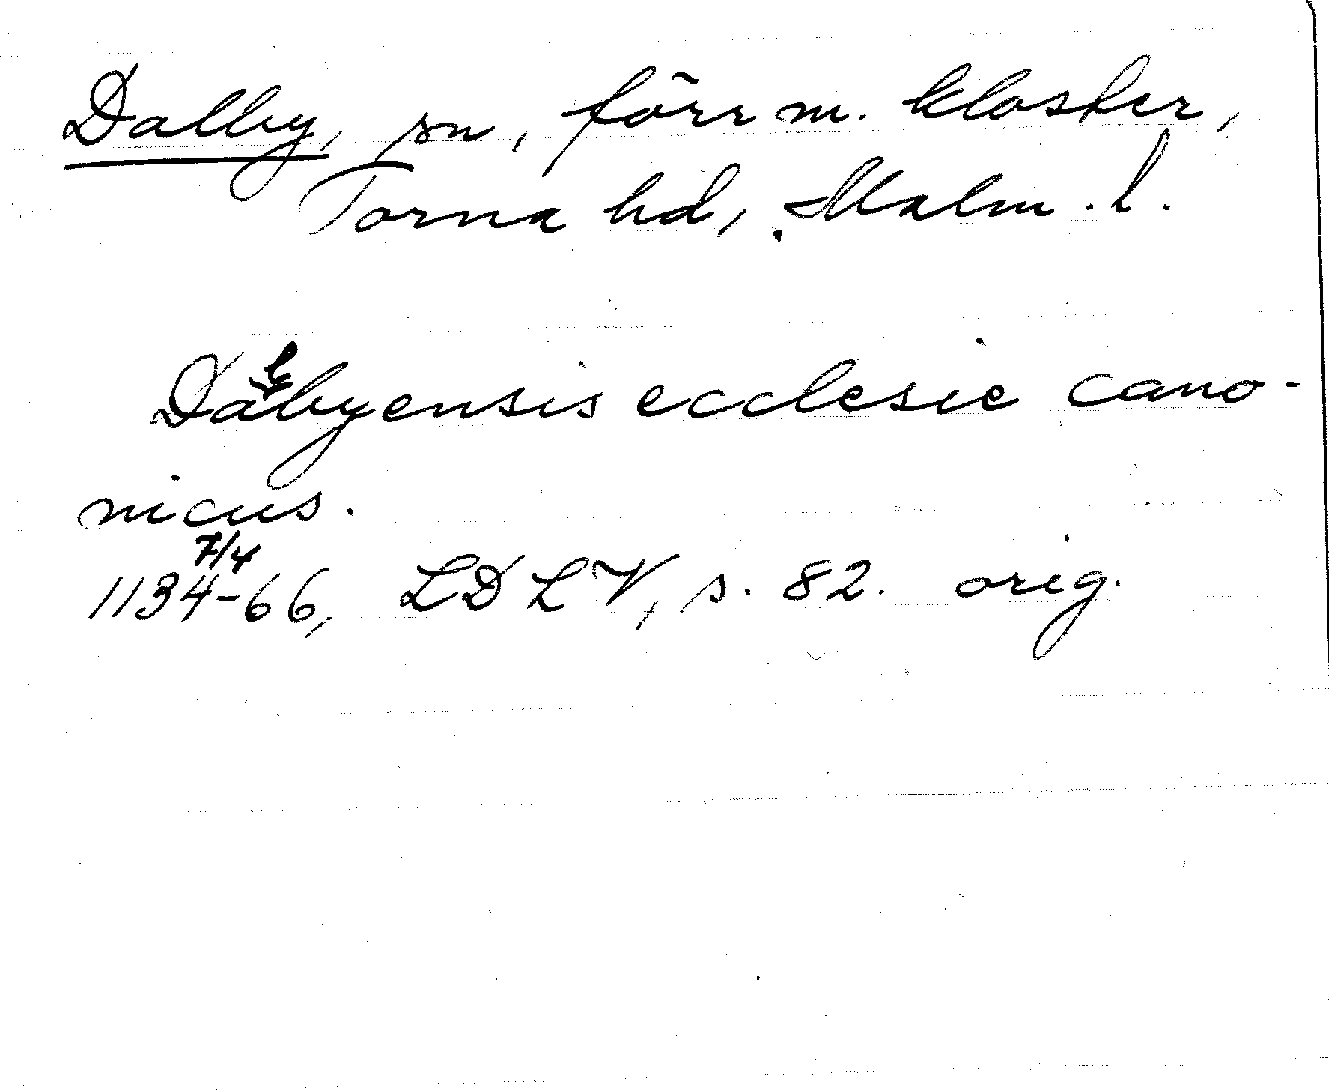 Dalby, sn, förr m. kloster,
Torna hd, Malm. l.
Dalbyensis ecclesie cano-
nicus.
7/4
1134-66, LDLV, s. 82. orig.